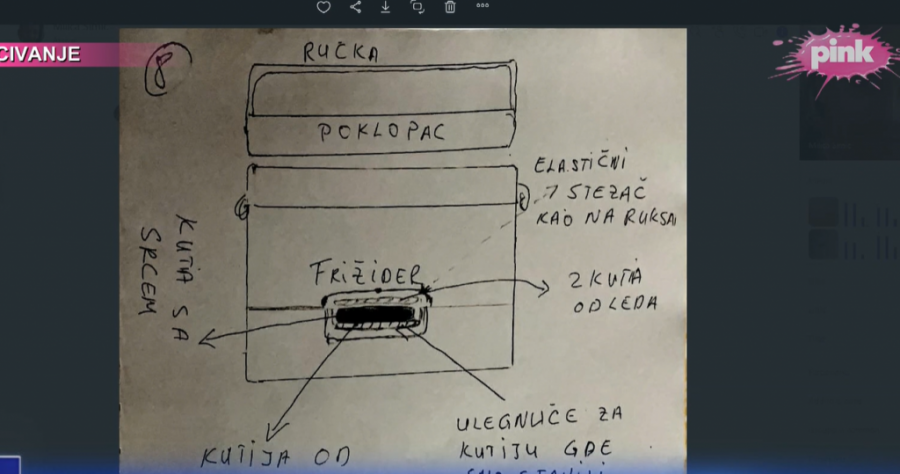 CIVANJE
pink
8
RUČKA
POKLOPAC
ELASTIČNI
STEZAČ
KAO NA RUKSA
KUTIA SA
SRCEM
FRIŽIDER
2 KUTIA
OD LEDA
ULEGNUČE ZA
KUTIJU GDE
KUTIJA OD